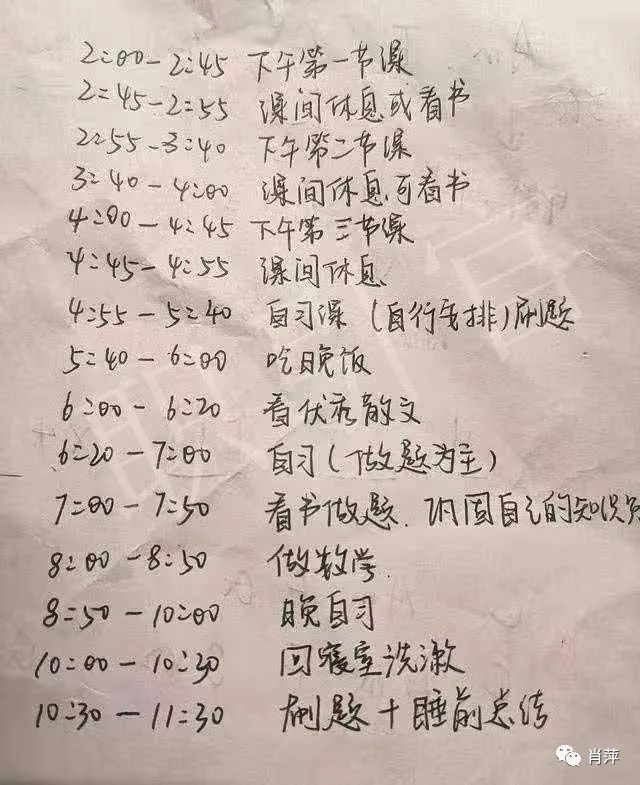 2:00-2:45 下午第一节课
2:45-2:55 课间休息或看书
2:55-3:40 下午第二节课
3:40-4:00 课间休息可看书
4:00-4:45 下午第三节课
4:45-4:55 课间休息
4:55-5:40 自习课(自行安排)刷题
5:40-6:00 吃晚饭
6:00-6:20 看优秀散文
6:20-7:00 自习(做题为主)
7:00-7:50 看书做题.巩固自己的知识
8:00-8:50 做数学
8:50-10:00 晚自习
10:00-10:30 回寝室洗漱
10:30-11:30 刷题+睡前总结
肖萍